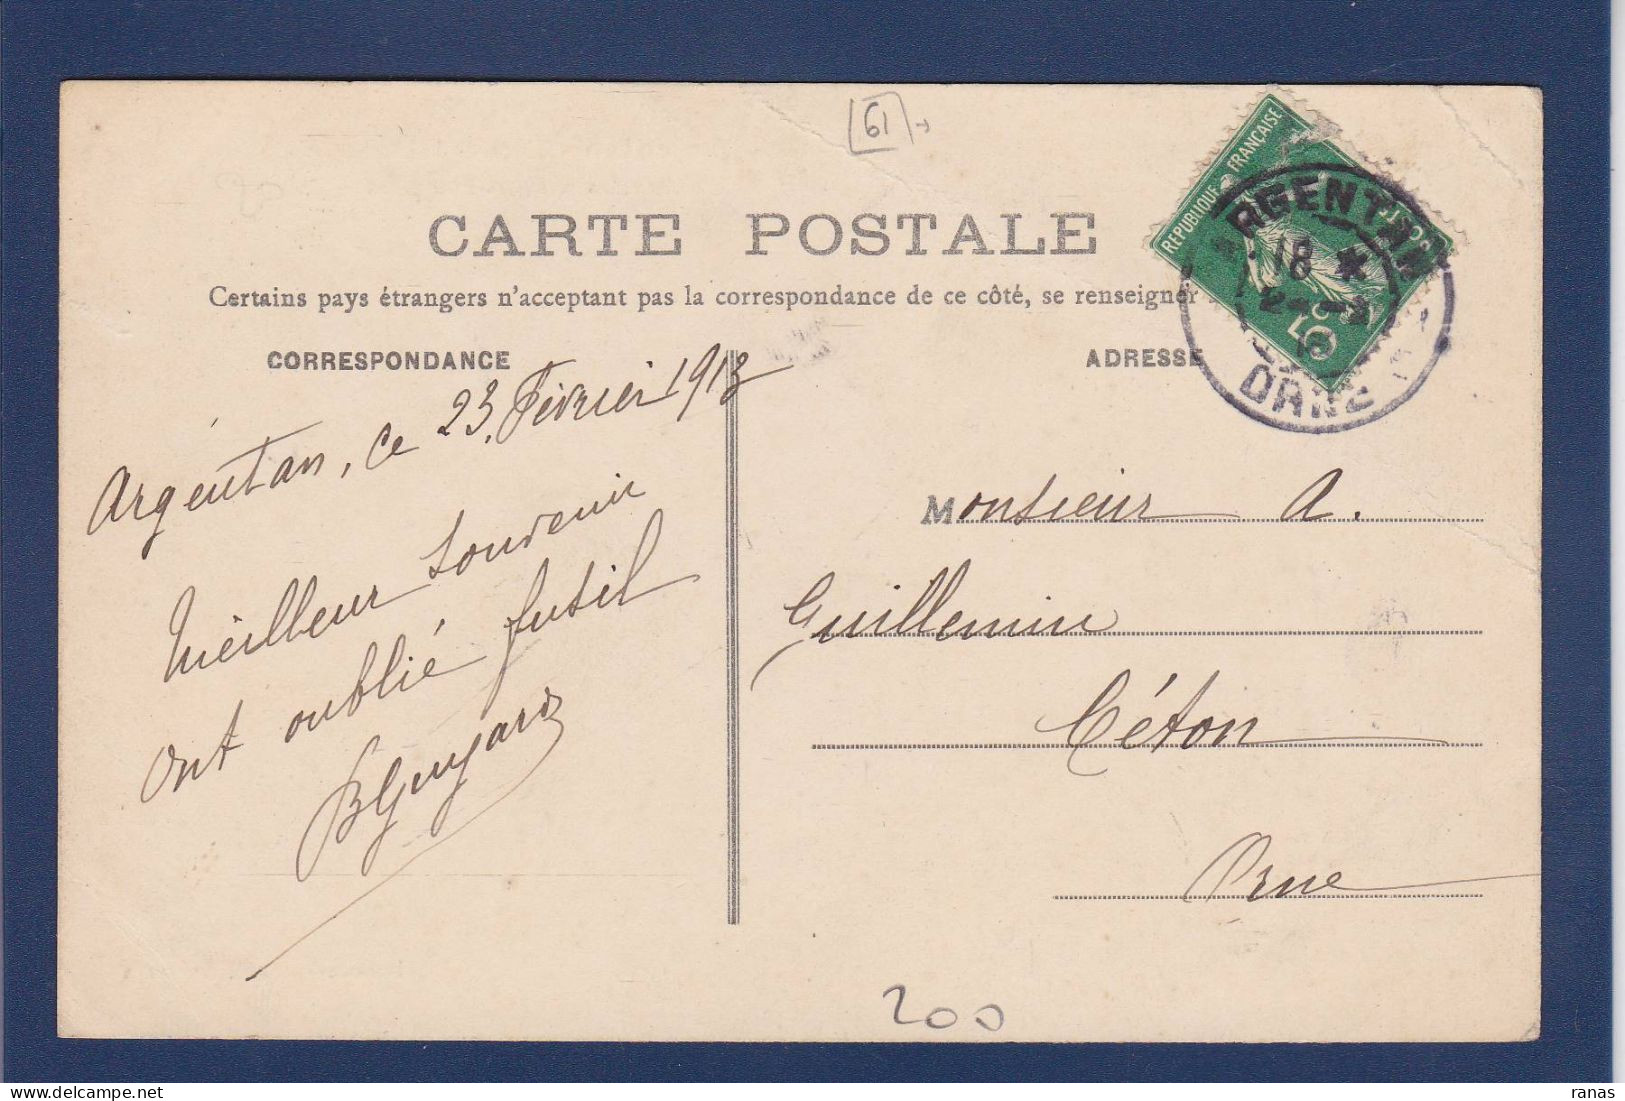 61
CARTE POSTALE
Certains pays étrangers n'acceptent pas la correspondance de ce côté, se renseigner
RÉPUBLIQUE FRANÇAISE
POSTES
5c
ARGENTAN
18 *
ORNE
CORRESPONDANCE
ADRESSE
Argentan, ce 23 Février 1913
Meilleur Souvenir
ont oublié fusil
BGuyard
Monsieur A.
Guillemin
Céton
Orne
200
ranas